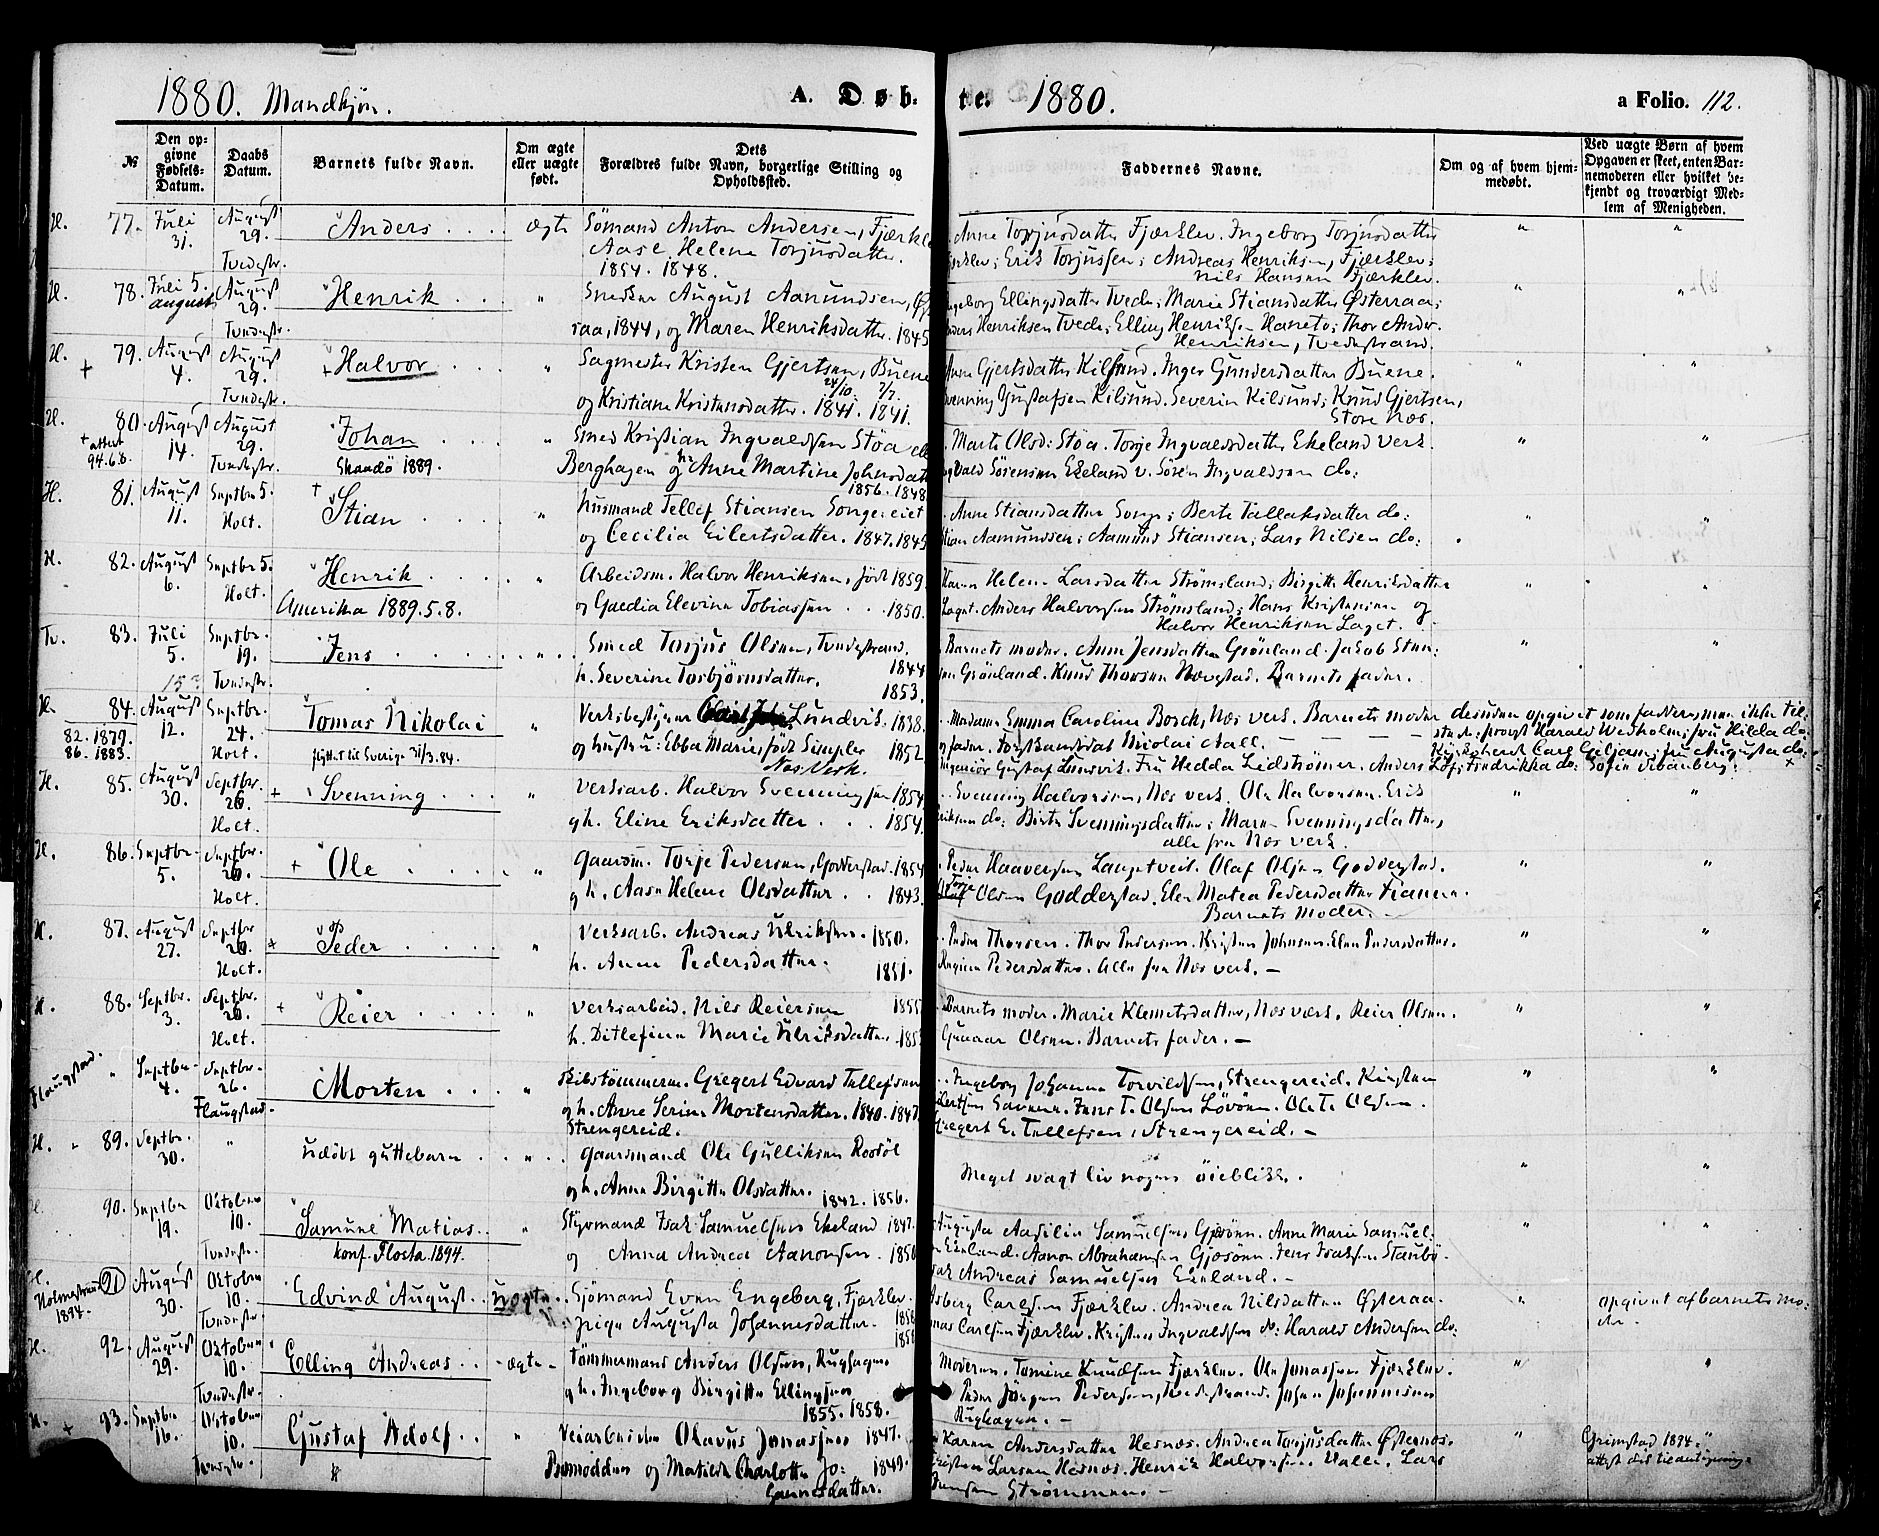 1880. Mandkjøn. A. Døb- te. 1880. a Folio. 112.
№ Den opgivne Fødsels-Datum. Daabs Datum. Barnets fulde Navn. Om ægte eller uægte født. Dets Forældres fulde Navn, borgerlige Stilling og Opholdssted. Faddernes Navne. Om og af hvem hjemmedøbt. Ved uægte Børn af hvem Opgaven er skeet, enten Barnemoderen eller hvilket bekjendt og troværdigt Medlem af Menigheden.
H. 77. Juli 31. August 29. Tvedestr. Anders ægte Sømand Anton Andersen, Fjærklev
Aase Helene Torjusdatter.
1854. 1848.
Anne Torjusdatter Fjærklev. Ingeborg Torjusdatter
Fjærklev; Erik Torjussen; Andreas Henriksen, Fjærklev;
Nils Hansen Fjærklev.
H. 78. Juli 5. august August 29. Tvedestr. Henrik " Snedker August Aanundsen,
raa, 1844, og Maren Henriksdatter. 1845
Ingeborg Ellingsdatter Tvede; Marie Stiansdatter Østeraa;
Anders Henriksen Tvede; Elling Henriksen Haneto; Thor Ander.
Henriksen, Tvedestrand.
H. + 79. August 4. August 29. Tvedestr. Halvor " Sagmester Kristen Gjertsen, Buene
24/10. 7/7.
og Kristiane Kristensdatter. 1841. 1841.
Anne Gjertsdatter Kilsund. Inger Gundersdatter Buene.
Svenning Gustafsen Kilsund. Severin Kilsund; Knud Gjertsen,
Store Næs.
H. 80. August 14. August 29. Tvedestr. Johan " Smed Kristian Ingvaldsen Stoa
+ attest 94.6.6. Skaadø 1889.
Berghagen og Anne Martine Johnsdatt
1856. 1848.
Marte Olsd: Stoa. Torje Ingvaldsdatter Ekeland Verk
Ingvald Sørensen Ekeland v. Søren Ingvaldsen do:
H. 81. August 11. Septbr 5. Holt. Stian " Husmand Tellef Stiansen Songe eiet
og Cecilia Eilertsdatter. 1847. 1843
Anne Stiansdatter Songe; Berte Tallaksdatter do:
Stian Aamundsen; Aamund Stiansen; Lars Nilsen do:
H. 82. August 6. Septbr 5. Holt. Henrik " Arbeidsm. Halvor Henriksen, født 1859.
Amerika 1889.5.8. og Gaedia Elevine Tobiassen 1850.
Karen Helene Larsdatter Strømsland; Birgitte Henriksdatter
Laget. Anders Halvorsen Strømsland; Hans Kristensen og
Halvor Henriksen Laget.
Tv. 83. Juli 5. 15? Septbr. 19. Tvedestr. Jens " Smed Torjus Olsen, Tvedestrand.
1844
h. Severine Torbjørnsdatter. 1853.
Barnets moder. Anne Jensdatter Grønland. Jakob Steen:
sen Grønland. Knud Thorsen Nævestad. Barnets fader.
H. 84. August 12. Septbr. 24. Holt. Tomas Nikolai " Verksbestyrer Lundvik. 1838.
82. 1879.
86. 1883. flyttet til Sverige 21/3.84. og hustru: Ebba Marie født Simpler 1852
Næs Verk.
Madame Emma Caroline Bosch, Næs verk. Barnets moder desuden opgivet som faddere, men ikke til:
og fader. Forstkandidat Nicolai Aall. stede: provst Harald Wedholm; fru Hilda do:
Kyrkoherde Carl Giljam; fru Augusta do:
Ingeniør Gustaf Lundvik. Fru Hedda Lidströmer. Anders Löf; Fredrikka do: Sofie
H. 85. August 30. Septbr. 26. Holt. + Svenning " Verksarb. Halvor Svenningsen 1854
gh. Eline Eriksdatter 1854.
Svenning Halvorsen, Næs verk. Ole Halvorsen. Erik
Eriksen do: Birte Svenningsdatter; Maren Svenningsdatter,
alle fra Næs verk.
H. 86. Septbr. 5. Septbr. 26. Holt. + Ole " Gaardm. Torje Pedersen, Godderstad. 1854
g h. Aase Helene Olsdatter 1843.
Peder Haaversen Laugetveit. Olaf Olsen Godderstad.
Torje Olsen Godderstad. Elen Matea Pedersdatter Fianen.
Barnets Moder.
H. 87. August 27. Septbr 26. Holt. + Peder " Verksarb. Andreas Ulriksen. 1850.
h. Anne Pedersdatter. 1851.
Peder Thorsen. Thor Pedersen. Kristen Johnsen. Elen Pedersdatter.
Regine Pedersdatter. Alle fra Næs verk. —
H. 88. Septbr. 3. Septbr. 26. Holt. + Reier " Verksarbeid. Nils Reiersen 1855
h. Ditlefine Marie Ulriksdatter. 185
Barnets moder. Marie Klemetsdatter, Næs værk. Reier Olsen.
Gunnar Olsen. Barnets fader. —
Flaugstad. " Septbr. 4. Septbr. 26. Flaugstad. Morten " Skibstømmerm. Gregert Edvard Tellefsen
gh. Anne Serine Mortensdatter. 1840. 1847
Strengereid.
Ingeborg Johanne Torvildsen, Strengereid. Kirsten
Jens T. Olsen Løvøen. Ole T. Olsen.
Gregert E. Tellefsen, Strengereid. —
H. 89. Septbr. 30. " udøbt guttebarn " Gaardmand Ole Gulliksen Rosøl
og h. Anne Birgitte Olsdatter. 1842. 1856.
Meget svagt liv nogen øieblikke.
90. Septbr 19. Oktober 10. Tvedestr. Samune Matias. " Styrmand Isak Samuelsen Ekeland 1847.
konf. Flosta. 1894. og Anna Andrea Aanonsen. 1850
Augusta Aasilie Samuelsen Gjøsøen. Anne Marie Samuel:
Ekeland. Aanon Abrahamsen Gjøsøen. Jens Isaksen Staubø.
Isak Andreas Samuelsen Ekeland. —
H. Holmestrand 1894. 91 August 30. Oktober 10. Tvedestr. Edvind August uægte Sjømand Even Engeberg, Fjærklev.
pige Augusta Johannesdatter. 1858
1858
Asberg Carlsen Fjærklev. Andrea Nilsdatter Østeraa.
Carlsen Fjærklev. Kristen Ingvaldsen do: Harald Andersen do:
opgivet af barnets mo:
der.
H. 92. August 29. Oktober 10. Tvedestr. Elling Andreas ægte Tømmermand Anders Olsen, Rughagen
gh. Ingeborg Birgitte Ellingsen
1855. 1858.
Moderen. Tomine Knudsen Fjærklev. Ole Jonassen Fjærklev.
Peder Jørgen Pedersen, Tvedestrand. Johan Johannesen
Rughagen. —
H. + 93. Septbr 16. Oktober 10. Tvedestr. Gustaf Adolf " Veiarbeider Olavus Jonassen 1847.
og Matilde Charlotte Jo: 1849.
hannesdatter.
Karen Andersdatter Hesnæs. Andrea Torjusdatter Østernæs.
Kristen Larsen Hesnæs. Henrik Halvorsen Valle. Lars
Jensen Strømmen. —
Grimstad 1894.